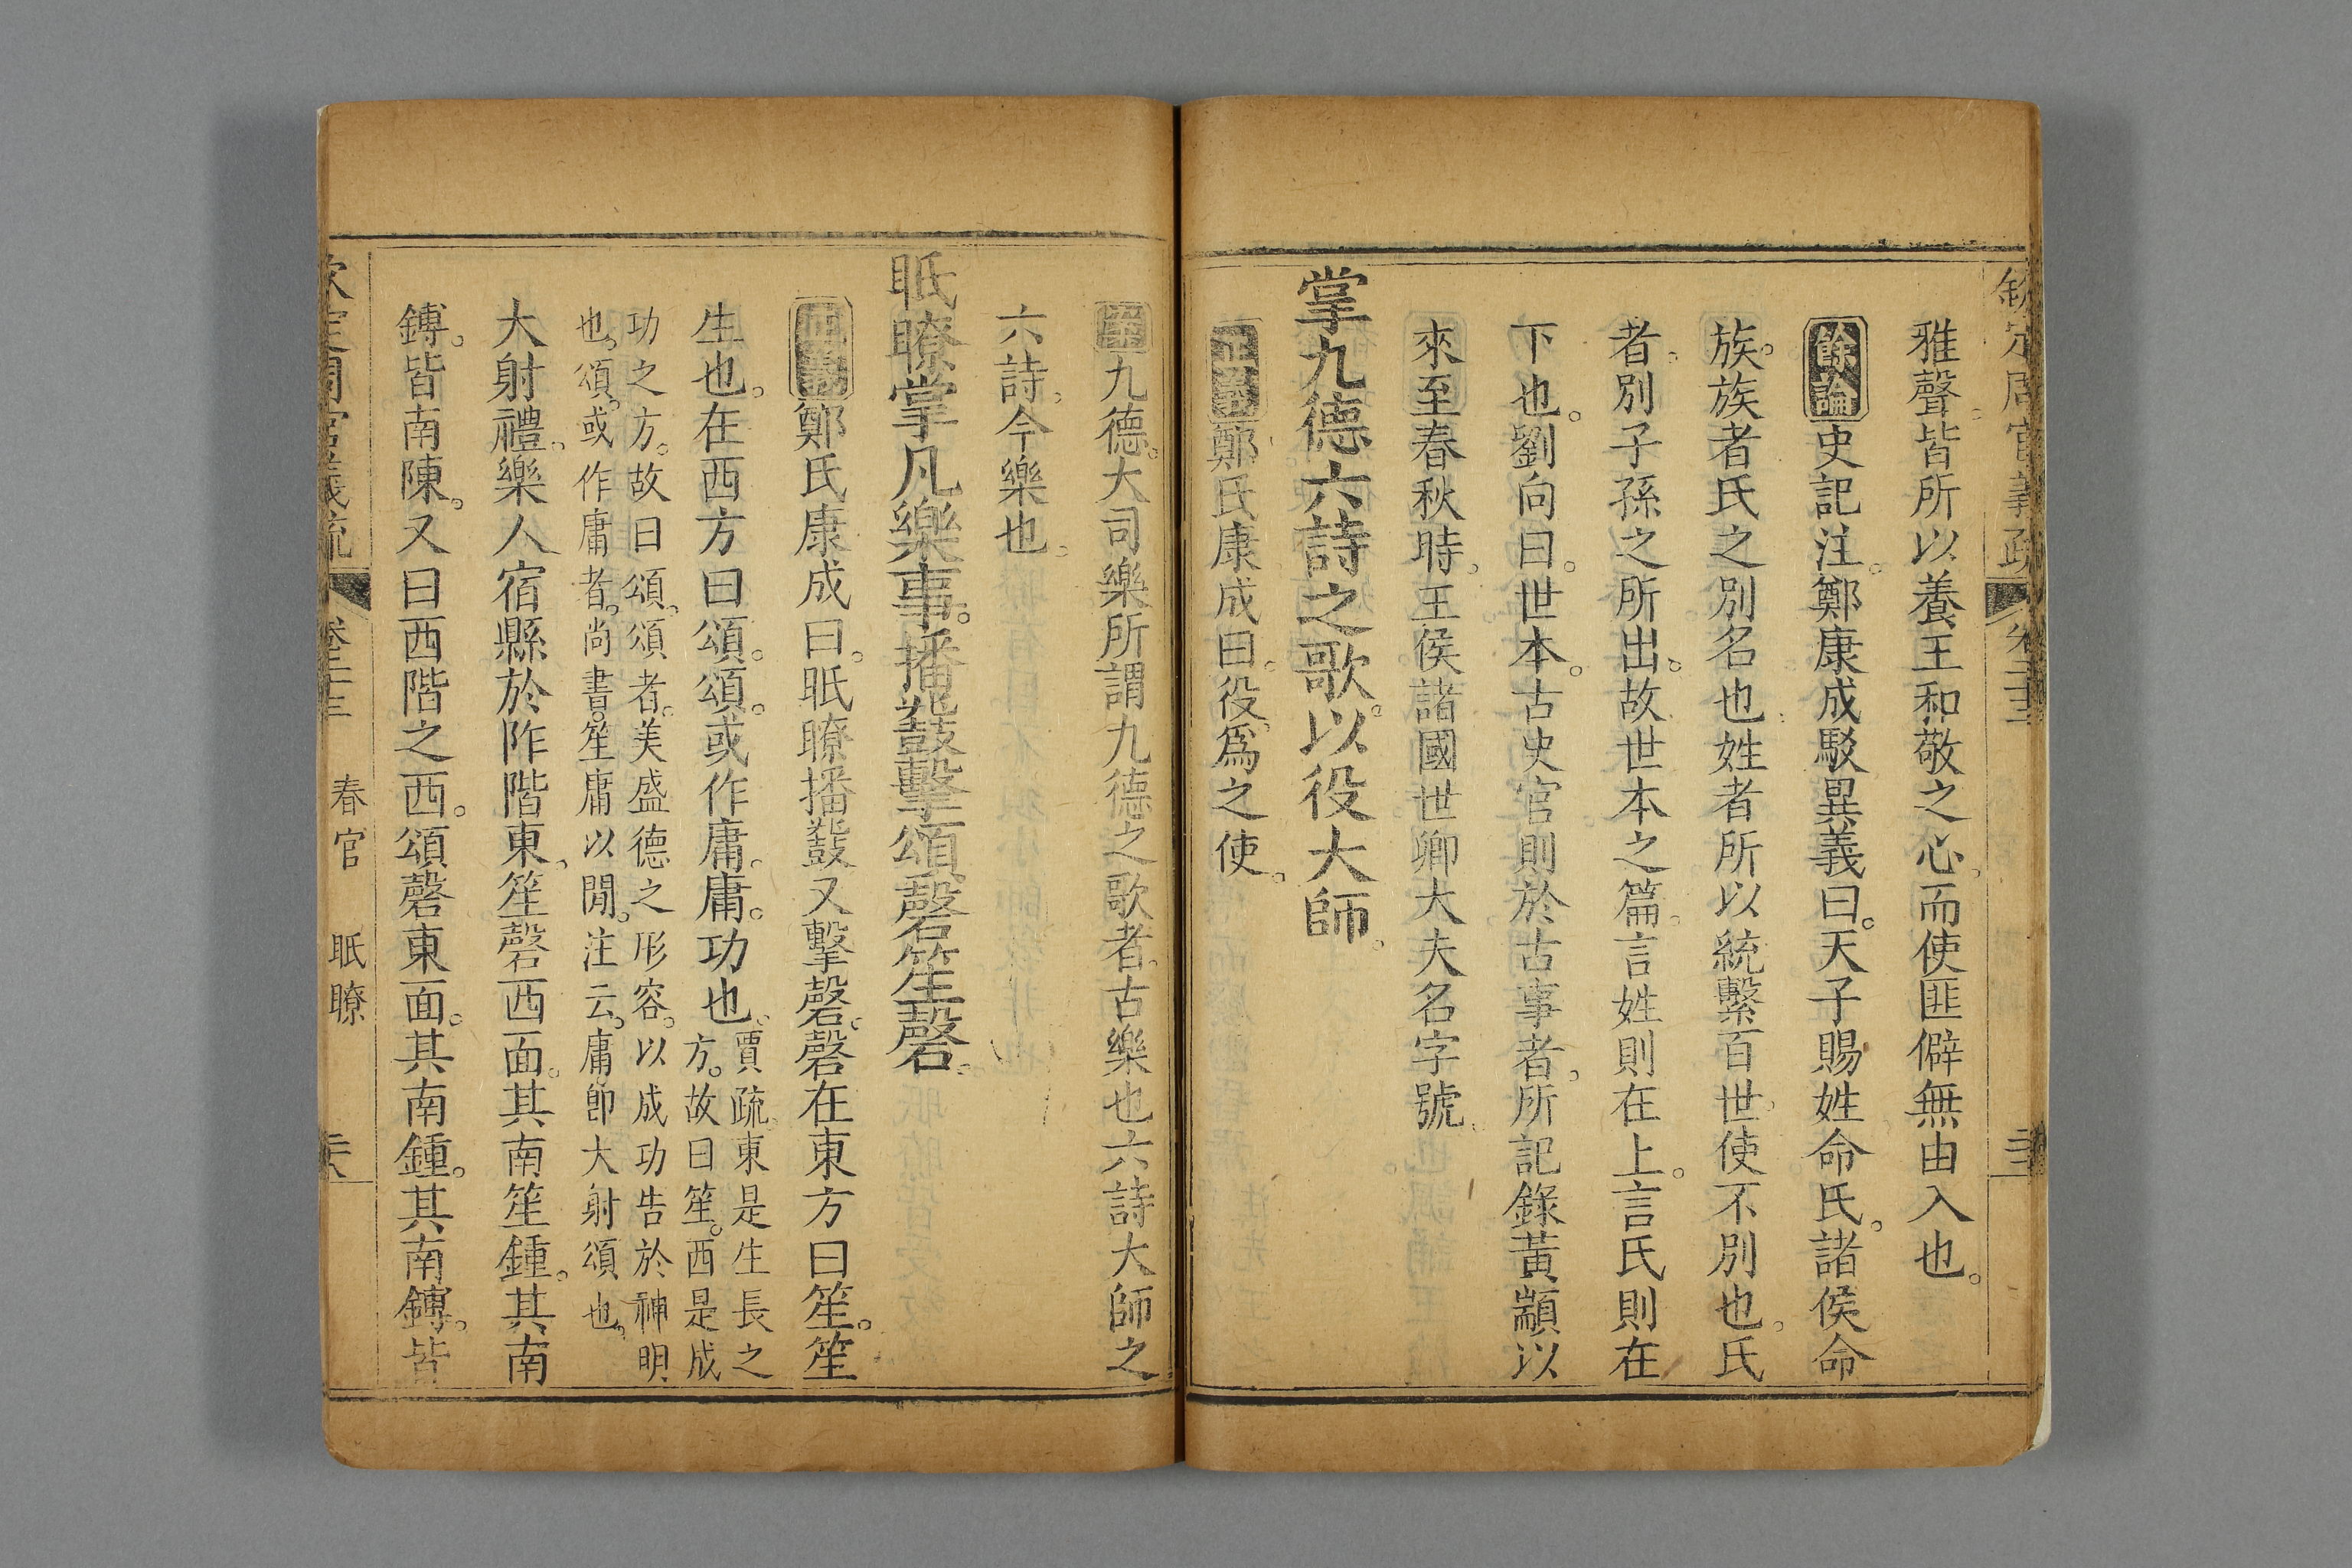 欽定周官義疏 卷二十三
雅聲。皆所以養王和敬之心。而使匪僻無由入也。
餘論史記注。鄭康成駁異義曰。天子賜姓命氏。諸侯命
族。族者氏之別名也。姓者所以統繫百世。使不別也。氏
者。別子孫之所出。故世本之篇。言姓則在上。言氏則在
下也。劉向曰。世本。古史官則於古事者。所記錄黃顓以
來至春秋時。王侯諸國世卿大夫名字號。
掌九德六詩之歌。以役大師。
正義鄭氏康成曰。役。爲之使。
案九德。大司樂所謂九德之歌者。古樂也六詩大師之
六詩。今樂也。
眡瞭掌凡樂事。播鼗擊頌磬笙磬。
正義鄭氏康成曰。眡瞭播鼗又擊磬。磬在東方曰笙。笙
生也。在西方曰頌。頌。或作庸。庸。功也。賈疏。東是生長之
方。故曰笙。西是成
功之方。故曰頌。頌者。美盛德之形容。以成功告於神明
也。頌。或作庸者。尚書。笙庸以閒。注云。庸。卽大射頌也。
大射禮。樂人宿縣於阼階東。笙磬西面。其南笙鍾。其南
鎛。皆南陳。又曰西階之西。頌磬東面。其南鍾。其南鎛。皆
欽定周官義疏 卷三十三 春官 眡瞭